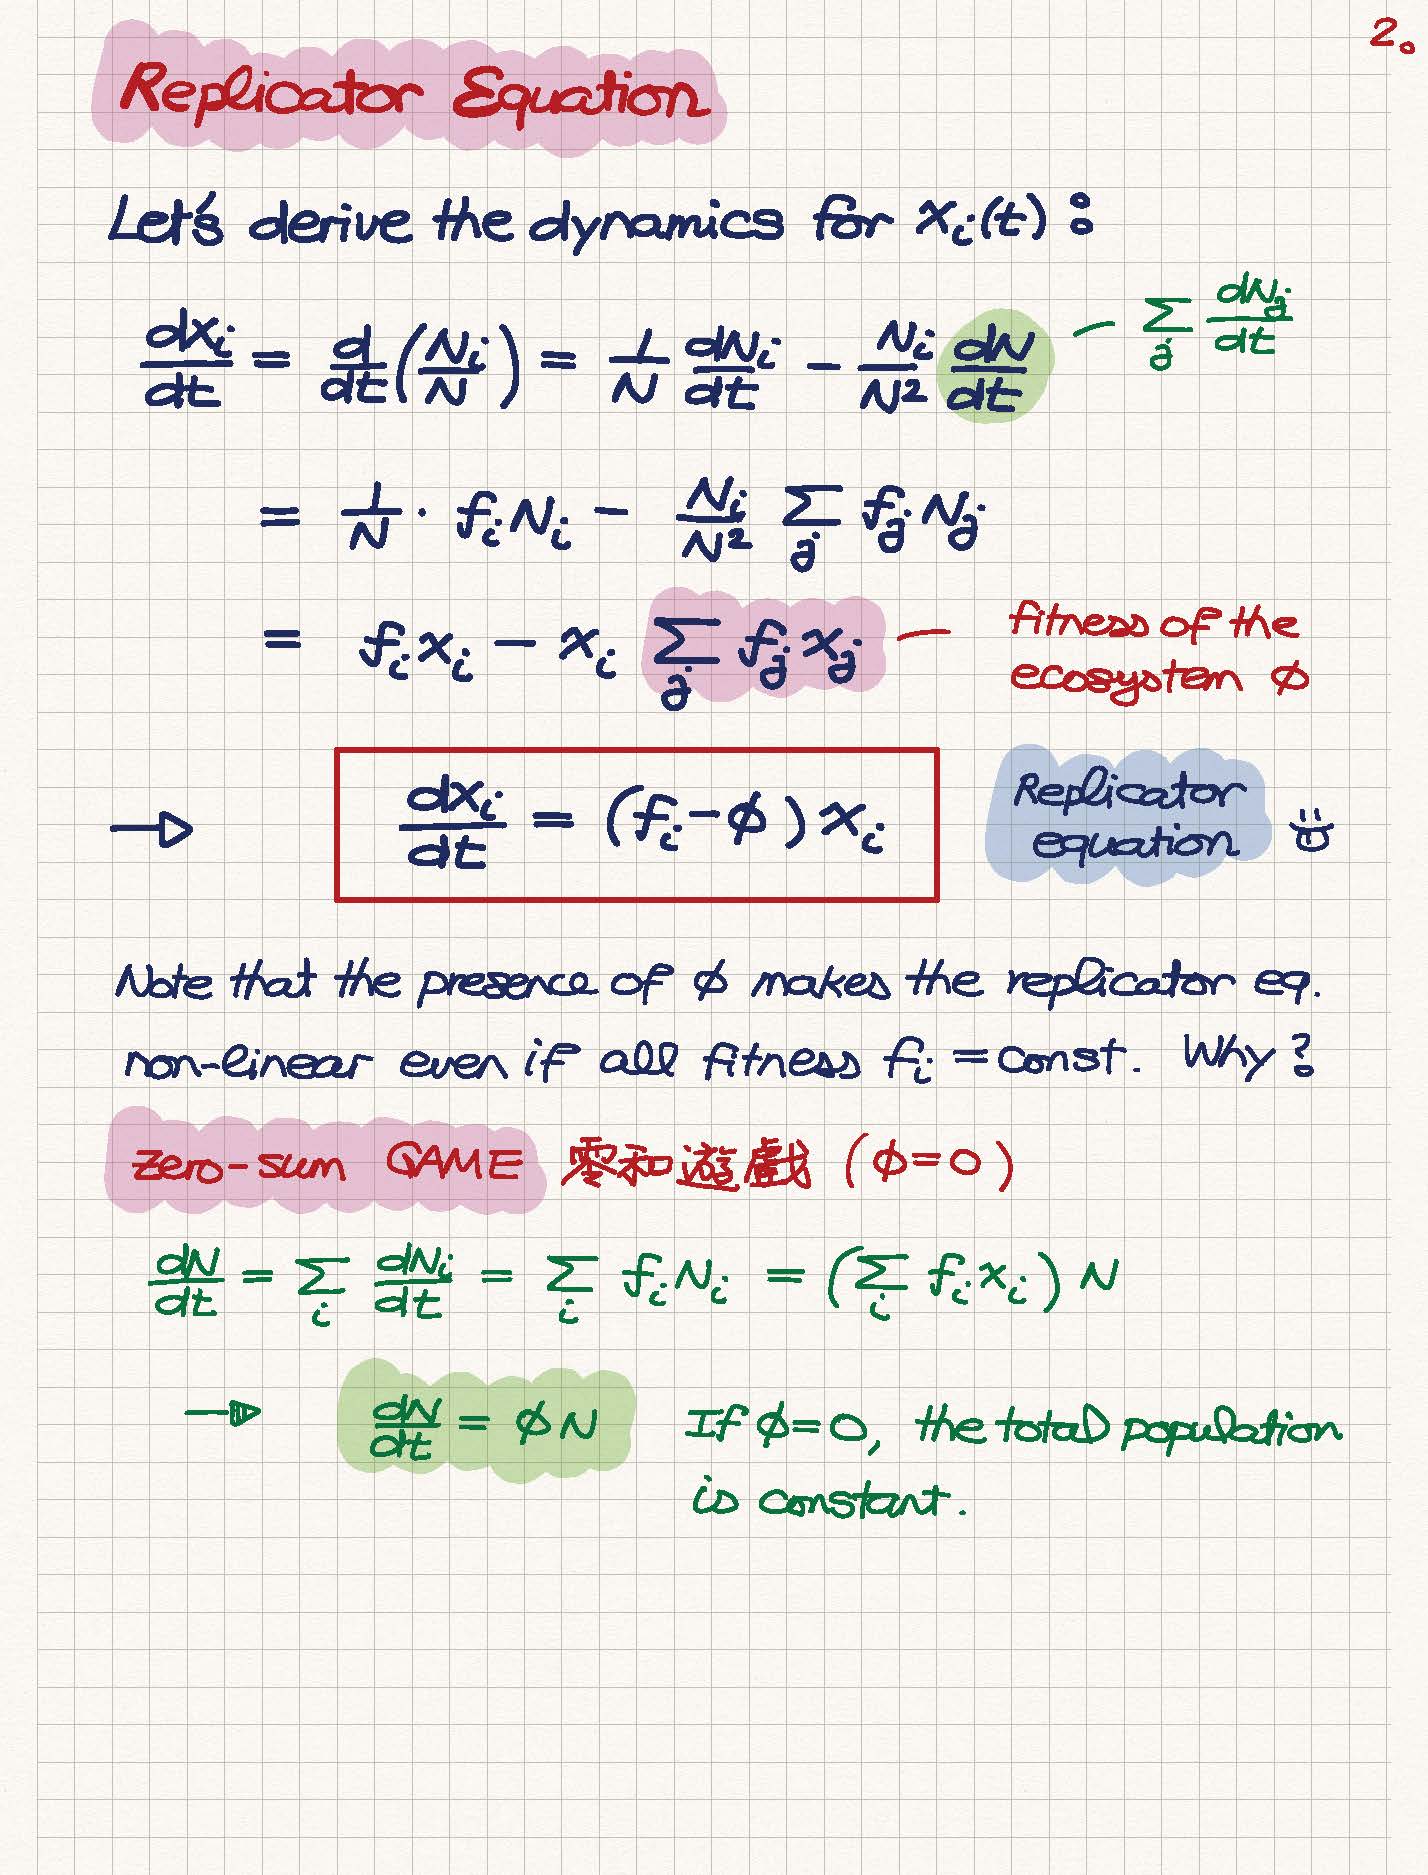 2.
Replicator Equation
Let's derive the dynamics for xᵢ(t) :
dxᵢ/dt = d/dt (Nᵢ/N) = 1/N dNᵢ/dt − Nᵢ/N² dN/dt — Σⱼ dNⱼ/dt
= 1/N · fᵢNᵢ − Nᵢ/N² Σⱼ fⱼNⱼ
= fᵢxᵢ − xᵢ Σⱼ fⱼxⱼ — fitness of the
ecosystem ϕ
→ dxᵢ/dt = (fᵢ − ϕ) xᵢ
Replicator
equation
Note that the presence of ϕ makes the replicator eq.
non-linear even if all fitness fᵢ = const. Why?
zero-sum GAME 零和遊戲 (ϕ=0)
dN/dt = Σᵢ dNᵢ/dt = Σᵢ fᵢNᵢ = (Σᵢ fᵢxᵢ) N
→ dN/dt = ϕN If ϕ=0, the total population
is constant.